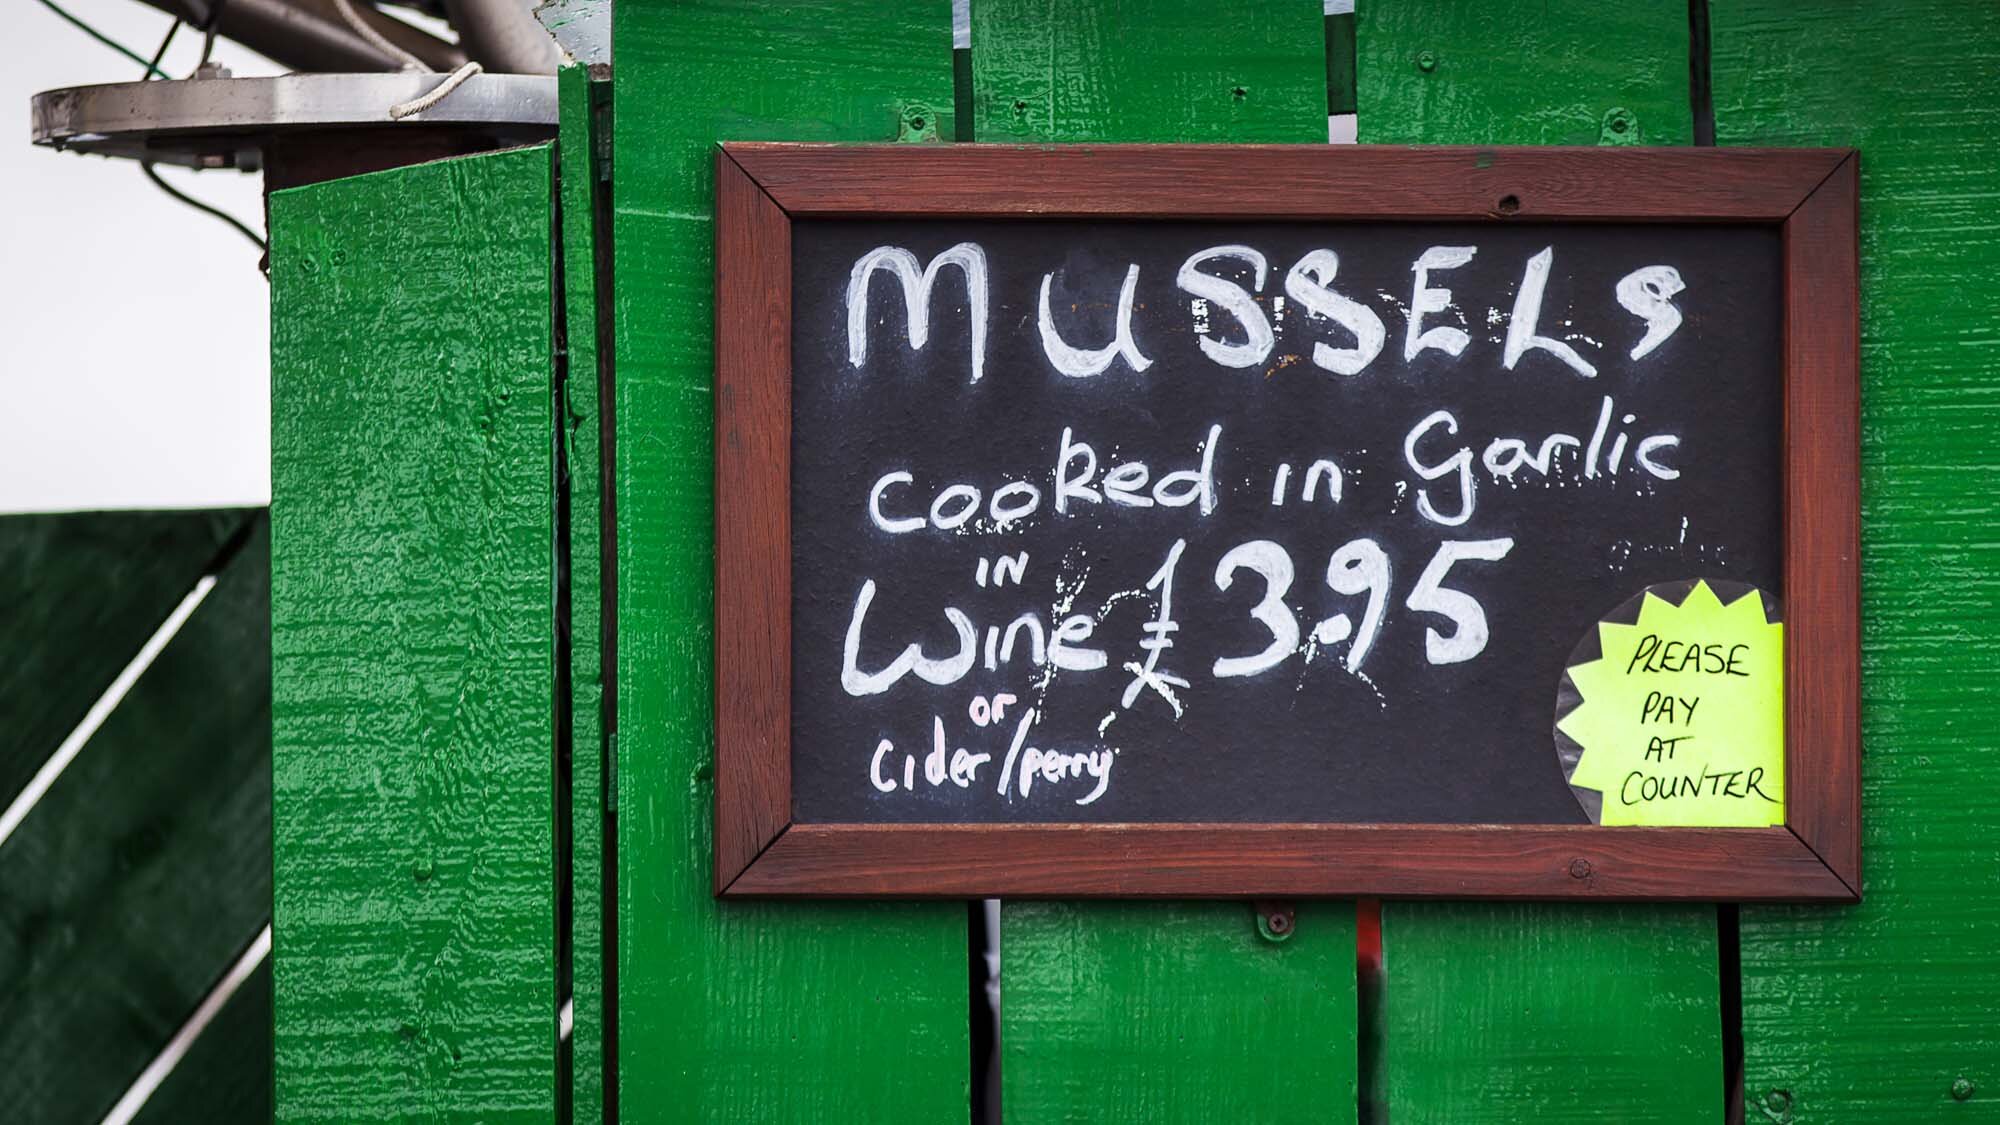 MUSSELS
cooked in Garlic
IN
Wine £3.95
or
cider/perry
PLEASE
PAY
AT
COUNTER